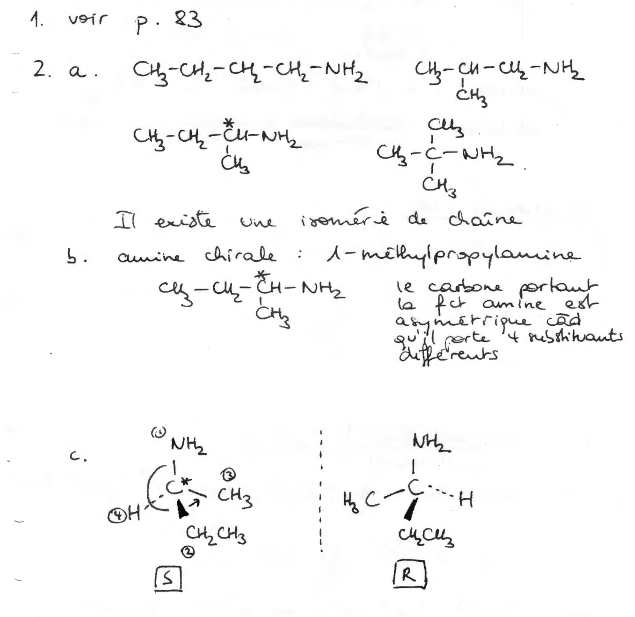 1. voir p. 83
2. a. CH3-CH2-CH2-CH2-NH2 CH3-CH-CH2-NH2
CH3
*
CH3-CH2-CH-NH2
CH3
CH3
CH3-C-NH2.
CH3
Il existe une isomérie de chaîne
b. amine chirale : 1-méthylpropylamine
*
CH3-CH2-CH-NH2
CH3
le carbone portant
la fct amine est
asymétrique càd
qu'il porte 4 substituants
différents
c.
① NH2
C* ③ CH3
④ H
CH2CH3
②
S
NH2
H3C C H
CH2CH3
R